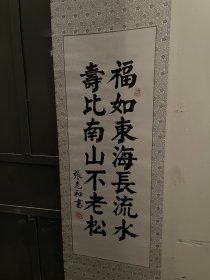 福如東海長流水
壽比南山不老松
張克和書